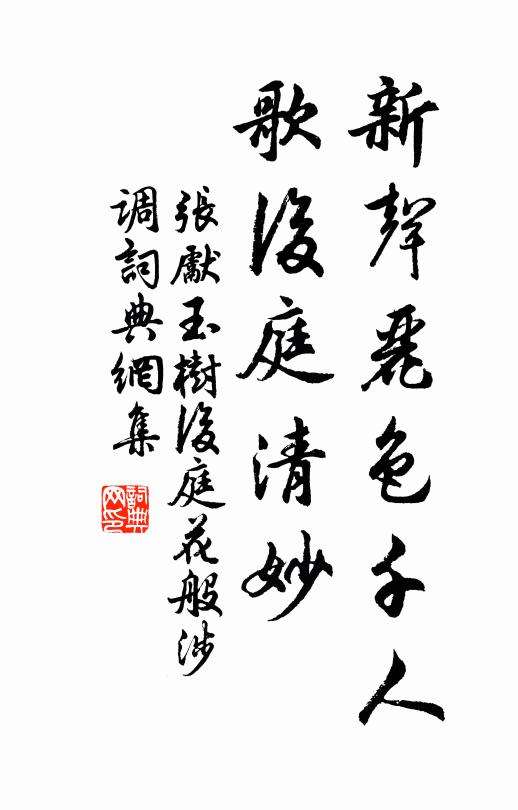 新聲麗色千人
歌後庭清妙
張獻玉樹後庭花般涉
调詞典網集
詞典网印